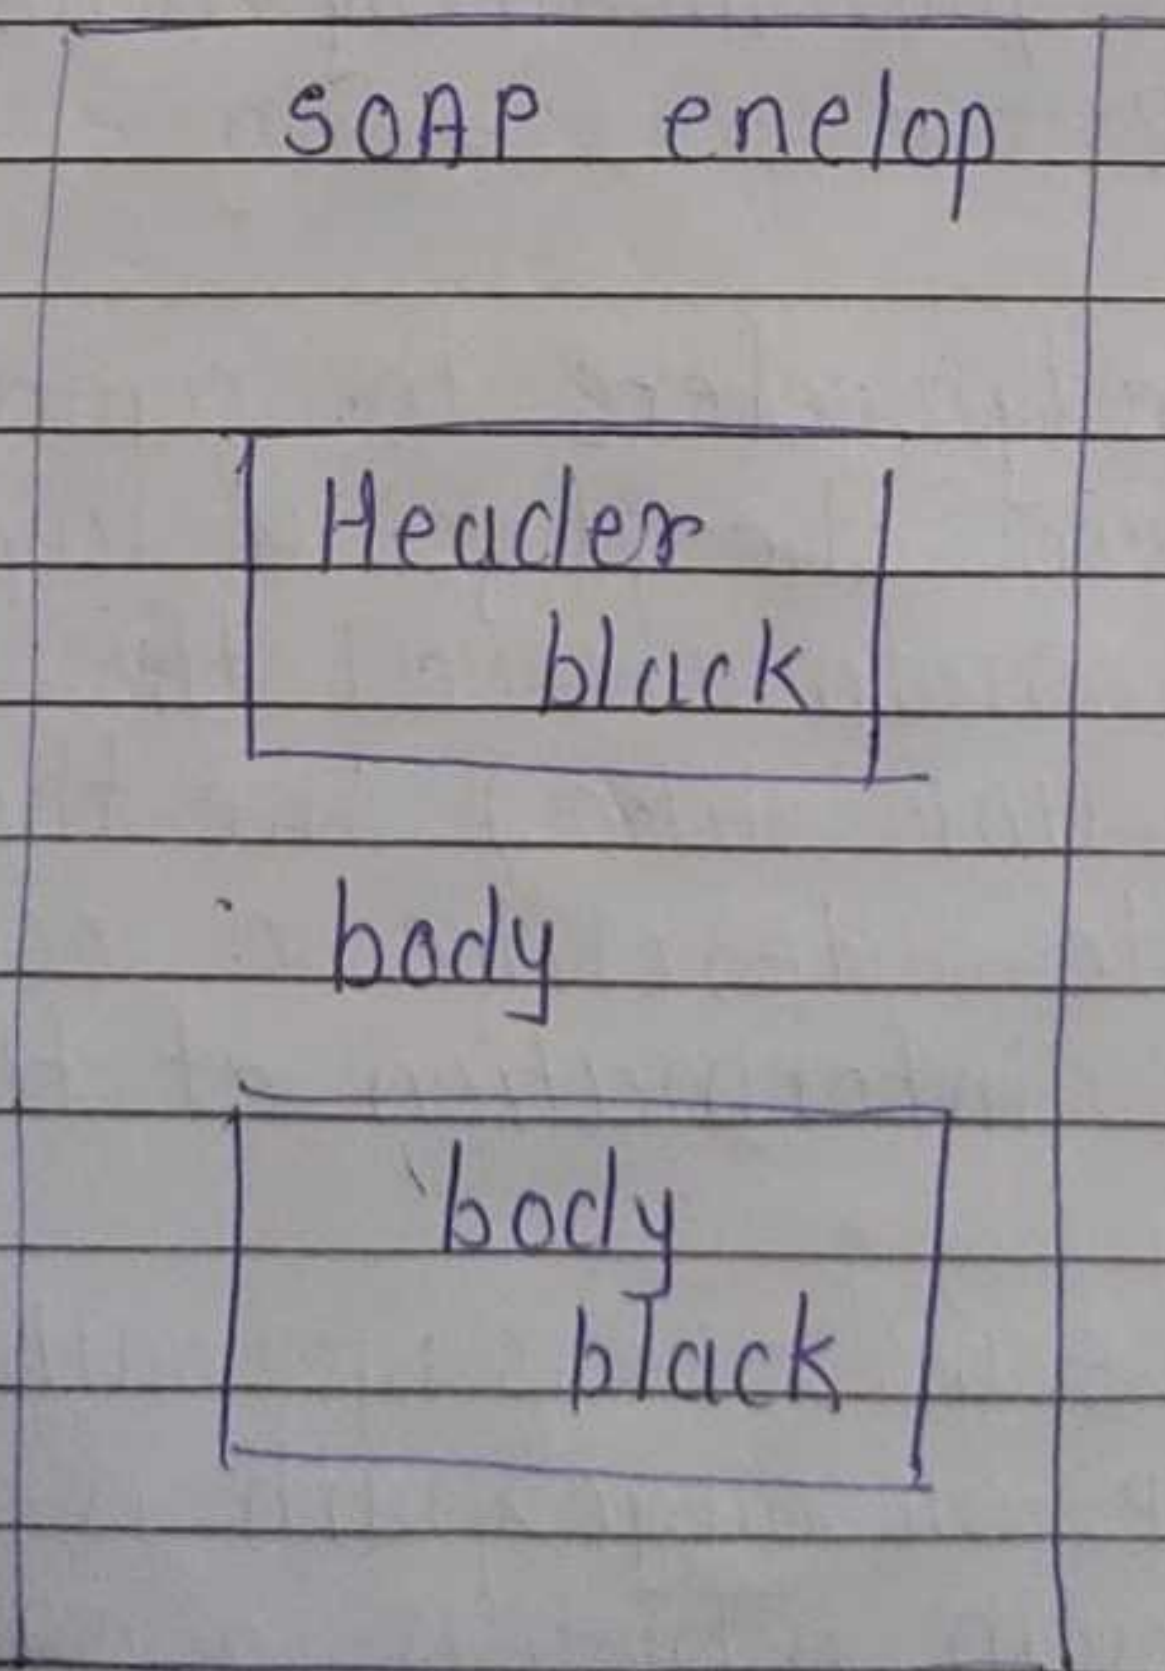 SOAP enelop
Header
black
body
body
black